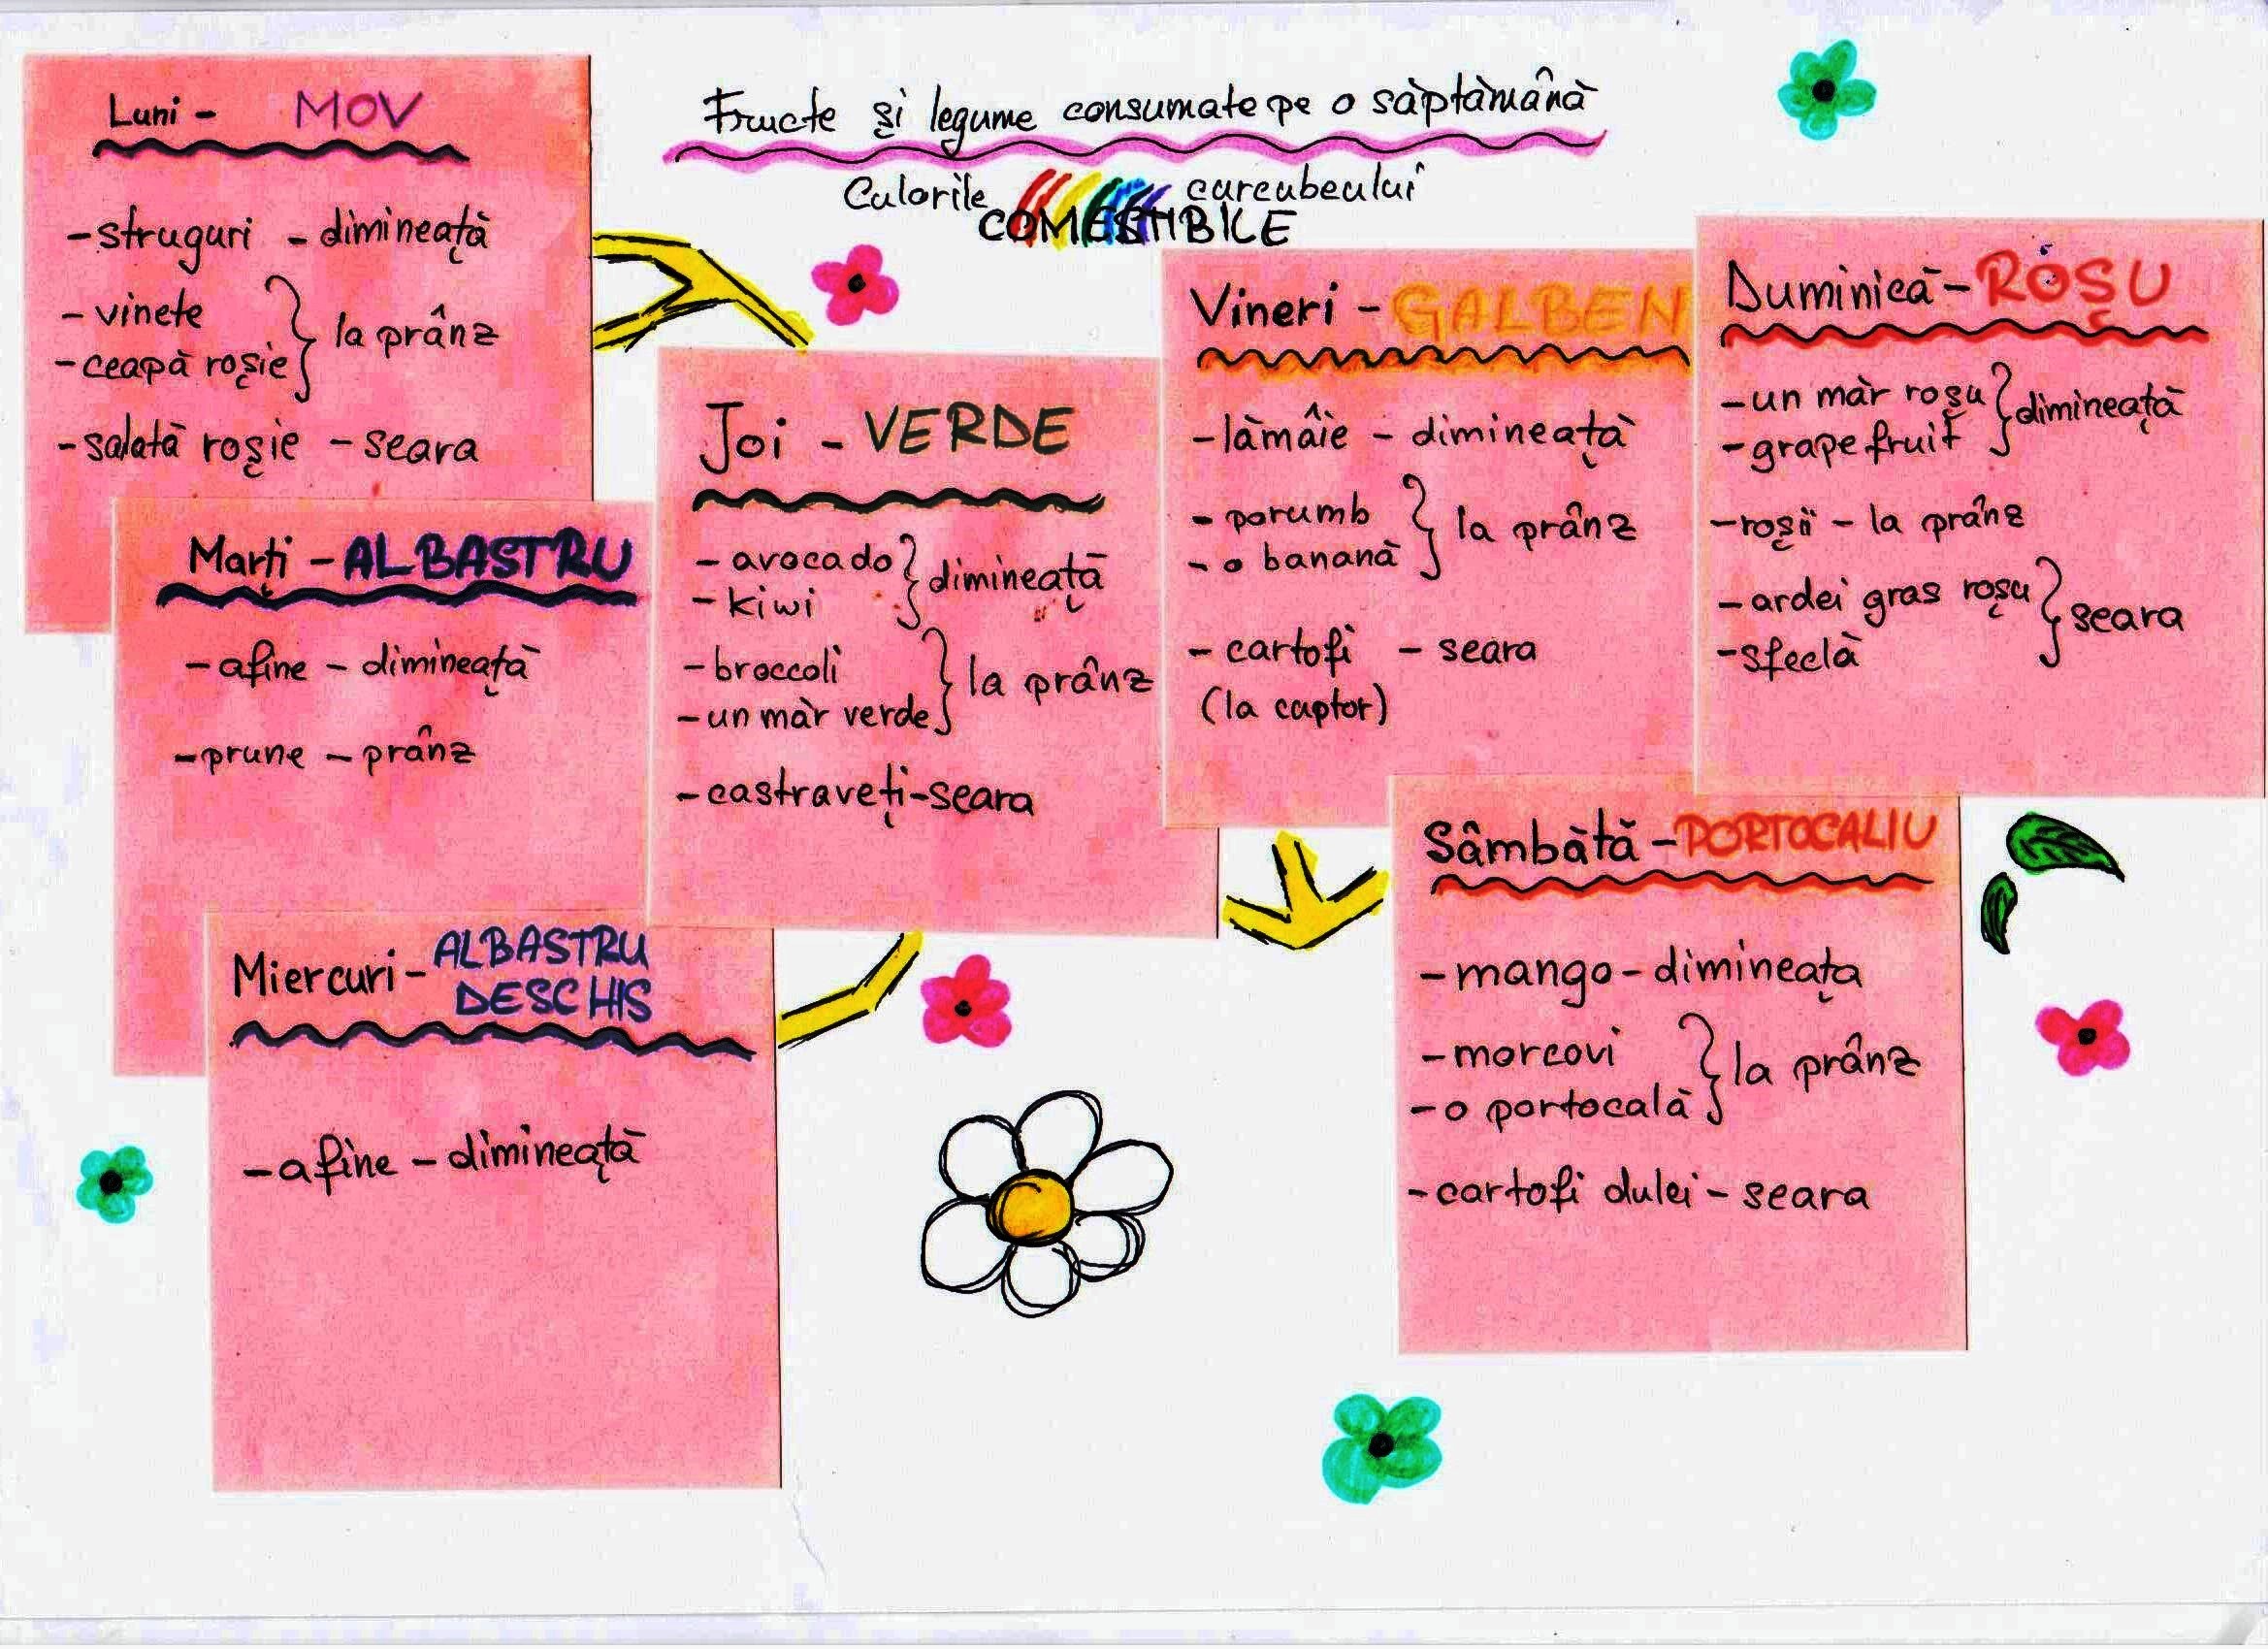 Fructe și legume consumate pe o săptămână
Culorile curcubeului
COMESTIBILE
Luni - MOV
- struguri - dimineață
- vinete
- ceapă roșie } la prânz
- salată roșie - seara
Marți - ALBASTRU
- afine - dimineață
- prune - prânz
Miercuri - ALBASTRU
DESCHIS
- afine - dimineață
Joi - VERDE
- avocado
- kiwi } dimineață
- broccoli
- un măr verde } la prânz
- castraveți - seara
Vineri - GALBEN
- lămâie - dimineață
- porumb
- o banană } la prânz
- cartofi - seara
(la cuptor)
Sâmbătă - PORTOCALIU
- mango - dimineața
- morcovi
- o portocală } la prânz
- cartofi dulci - seara
Duminică - ROȘU
- un măr roșu
- grapefruit } dimineață
- roșii - la prânz
- ardei gras roșu
- sfeclă } seara